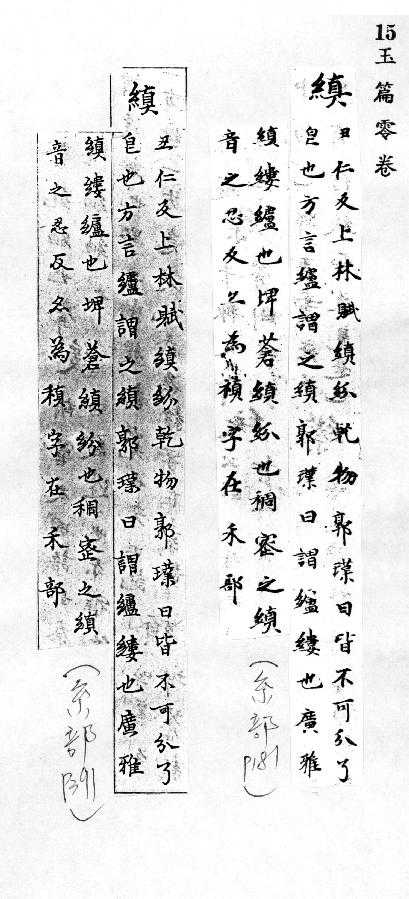 15
玉篇零卷
縝
丑仁反上林賦縝紛乹物郭璞曰皆不可分了
皃也方言纑謂之縝郭璞曰謂纑縷也廣雅
縝縷纑也埤蒼縝紛也稠密之縝
音之忍反之為禎字在禾部
(糸部P181)
縝
丑仁反上林賦縝紛乾物郭璞曰皆不可分了
皀也方言纑謂之縝郭璞曰謂纑縷也廣雅
縝縷纑也埤蒼縝紛也稠密之縝
音之忍反久為稹字在禾部
(糸部B91)